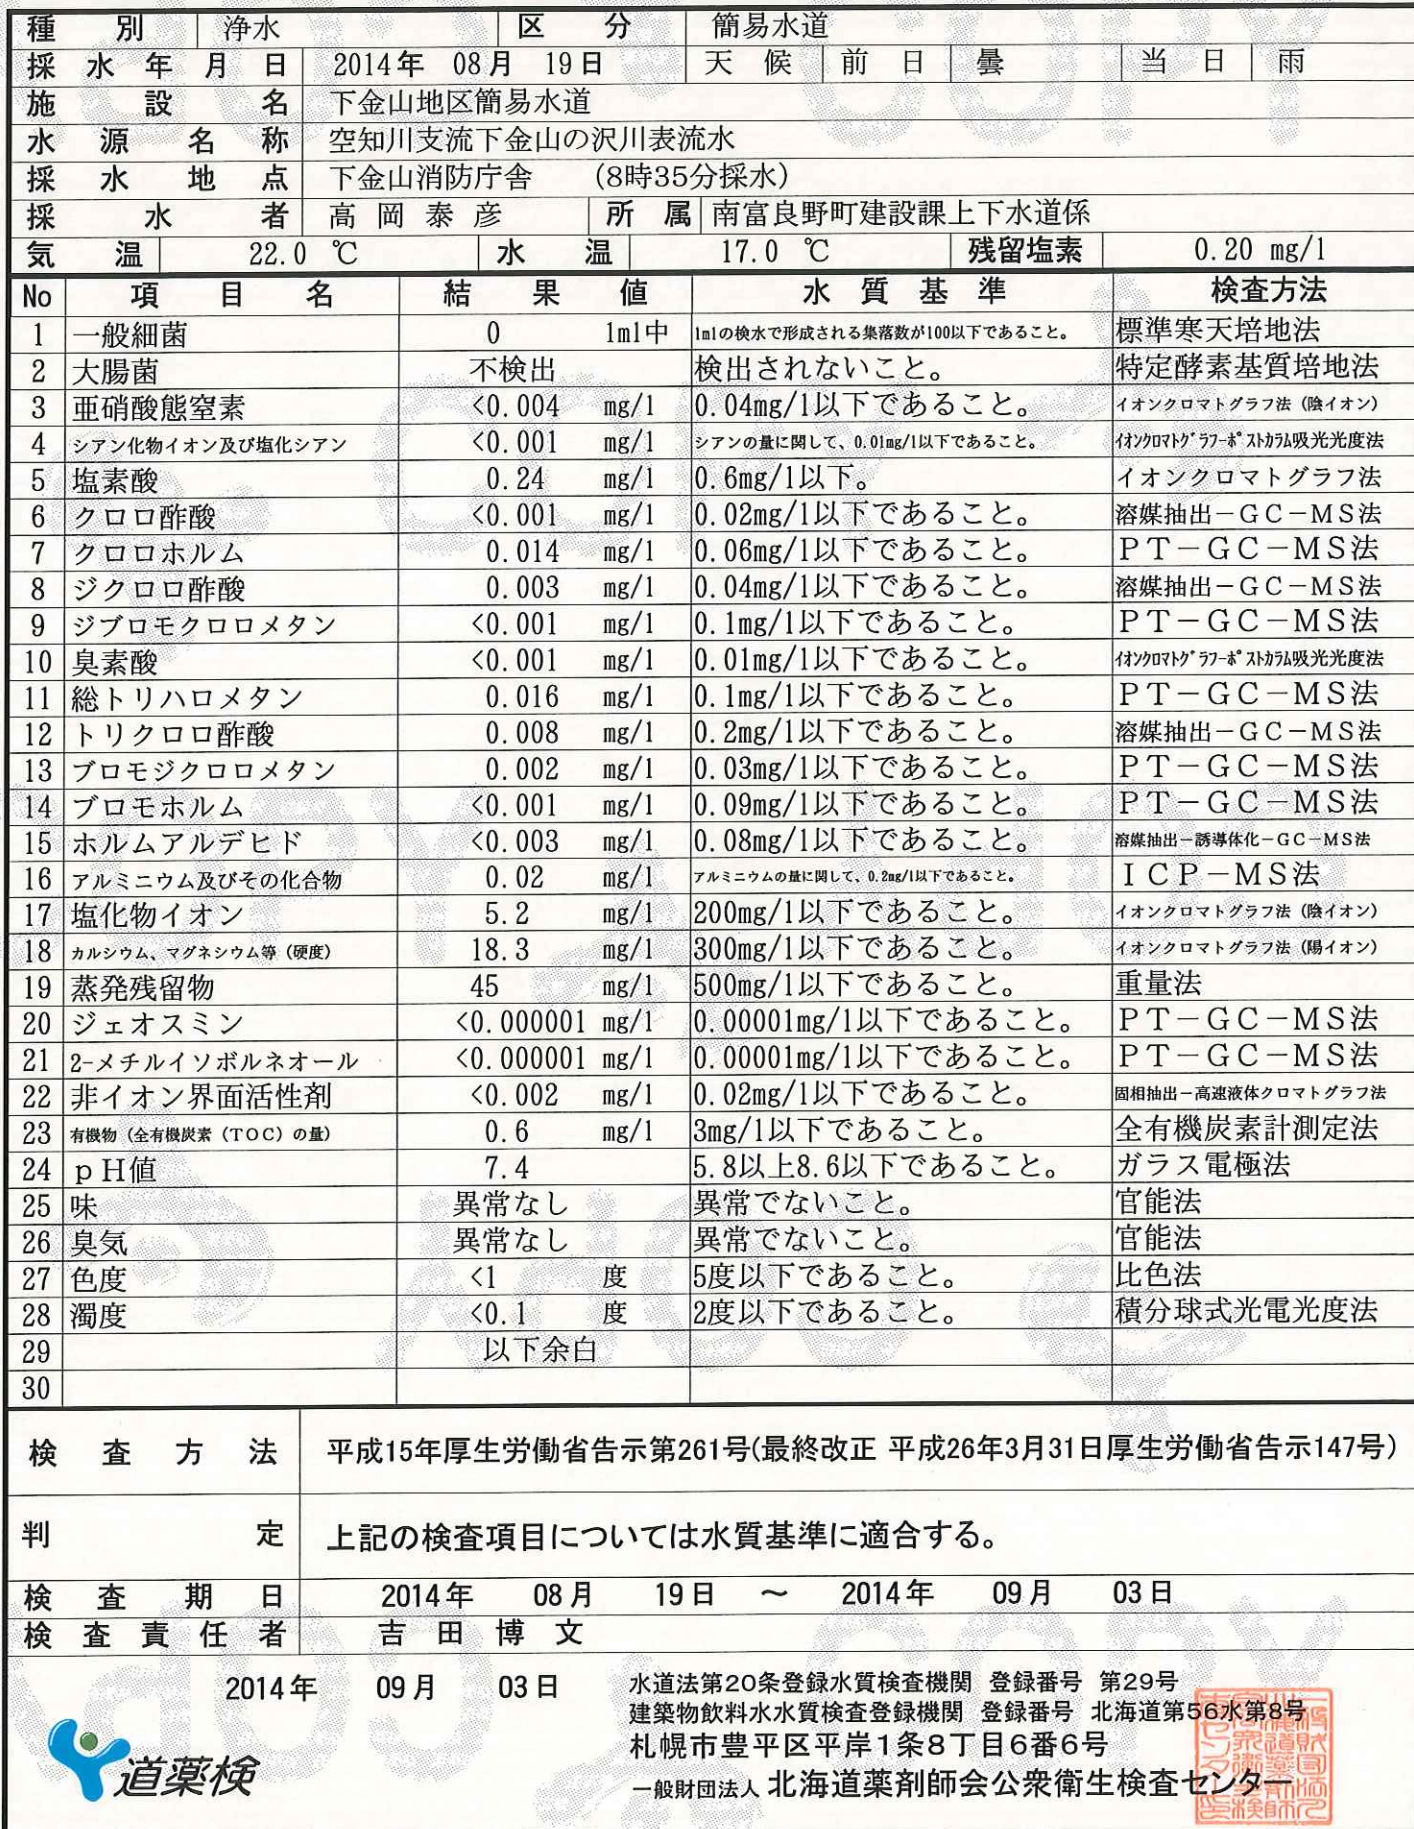 種別 浄水 区分 簡易水道
採水年月日 2014年 08月 19日 天候 前日 曇 当日 雨
施設名 下金山地区簡易水道
水源名称 空知川支流下金山の沢川表流水
採水地点 下金山消防庁舎 (8時35分採水)
採水者 高岡泰彦 所属 南富良野町建設課上下水道係
気温 22.0 ℃ 水温 17.0 ℃ 残留塩素 0.20 mg/l
No 項目名 結果値 水質基準 検査方法
1 一般細菌 0 1ml中 1mlの検水で形成される集落数が100以下であること。 標準寒天培地法
2 大腸菌 不検出 検出されないこと。 特定酵素基質培地法
3 亜硝酸態窒素 <0.004 mg/l 0.04mg/l以下であること。 イオンクロマトグラフ法(陰イオン)
4 シアン化物イオン及び塩化シアン <0.001 mg/l シアンの量に関して、0.01mg/l以下であること。 ｲｵﾝｸﾛﾏﾄｸﾞﾗﾌ-ﾎﾟｽﾄｶﾗﾑ吸光光度法
5 塩素酸 0.24 mg/l 0.6mg/l以下。 イオンクロマトグラフ法
6 クロロ酢酸 <0.001 mg/l 0.02mg/l以下であること。 溶媒抽出－GC－MS法
7 クロロホルム 0.014 mg/l 0.06mg/l以下であること。 PT－GC－MS法
8 ジクロロ酢酸 0.003 mg/l 0.04mg/l以下であること。 溶媒抽出－GC－MS法
9 ジブロモクロロメタン <0.001 mg/l 0.1mg/l以下であること。 PT－GC－MS法
10 臭素酸 <0.001 mg/l 0.01mg/l以下であること。 ｲｵﾝｸﾛﾏﾄｸﾞﾗﾌ-ﾎﾟｽﾄｶﾗﾑ吸光光度法
11 総トリハロメタン 0.016 mg/l 0.1mg/l以下であること。 PT－GC－MS法
12 トリクロロ酢酸 0.008 mg/l 0.2mg/l以下であること。 溶媒抽出－GC－MS法
13 ブロモジクロロメタン 0.002 mg/l 0.03mg/l以下であること。 PT－GC－MS法
14 ブロモホルム <0.001 mg/l 0.09mg/l以下であること。 PT－GC－MS法
15 ホルムアルデヒド <0.003 mg/l 0.08mg/l以下であること。 溶媒抽出－誘導体化－GC－MS法
16 アルミニウム及びその化合物 0.02 mg/l アルミニウムの量に関して、0.2mg/l以下であること。 ICP－MS法
17 塩化物イオン 5.2 mg/l 200mg/l以下であること。 イオンクロマトグラフ法(陰イオン)
18 カルシウム、マグネシウム等(硬度) 18.3 mg/l 300mg/l以下であること。 イオンクロマトグラフ法(陽イオン)
19 蒸発残留物 45 mg/l 500mg/l以下であること。 重量法
20 ジェオスミン <0.000001 mg/l 0.00001mg/l以下であること。 PT－GC－MS法
21 2-メチルイソボルネオール <0.000001 mg/l 0.00001mg/l以下であること。 PT－GC－MS法
22 非イオン界面活性剤 <0.002 mg/l 0.02mg/l以下であること。 固相抽出－高速液体クロマトグラフ法
23 有機物(全有機炭素(TOC)の量) 0.6 mg/l 3mg/l以下であること。 全有機炭素計測定法
24 pH値 7.4 5.8以上8.6以下であること。 ガラス電極法
25 味 異常なし 異常でないこと。 官能法
26 臭気 異常なし 異常でないこと。 官能法
27 色度 <1 度 5度以下であること。 比色法
28 濁度 <0.1 度 2度以下であること。 積分球式光電光度法
29 以下余白
30
検査方法 平成15年厚生労働省告示第261号(最終改正 平成26年3月31日厚生労働省告示147号)
判定 上記の検査項目については水質基準に適合する。
検査期日 2014年 08月 19日 ～ 2014年 09月 03日
検査責任者 吉田博文
2014年 09月 03日
水道法第20条登録水質検査機関 登録番号 第29号
建築物飲料水水質検査登録機関 登録番号 北海道第56水第8号
札幌市豊平区平岸1条8丁目6番6号
一般財団法人 北海道薬剤師会公衆衛生検査センター
道薬検